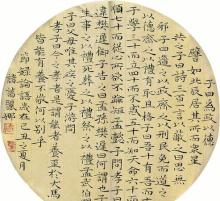 子曰為政以德
譬如北辰居其所而衆星
共之子曰詩三百一言以蔽之曰思無
邪子曰道之以政齊之以刑民免而無
以德齊之以禮有恥且格子曰吾十有五而志
于學三十而立四十而不惑五十而知天命六十
七十而從心所欲不踰矩孟懿子問孝子曰
違樊遲御子告之曰孟孫問孝於我我對曰無違
樊遲曰何謂也子曰
生事之以禮死葬之以禮祭之以禮孟武伯
子曰父母唯其疾之憂子游問
孝子曰今之孝者是謂能養至於犬馬
皆能有養不敬何以別乎
節錄論語為政己丑之夏月